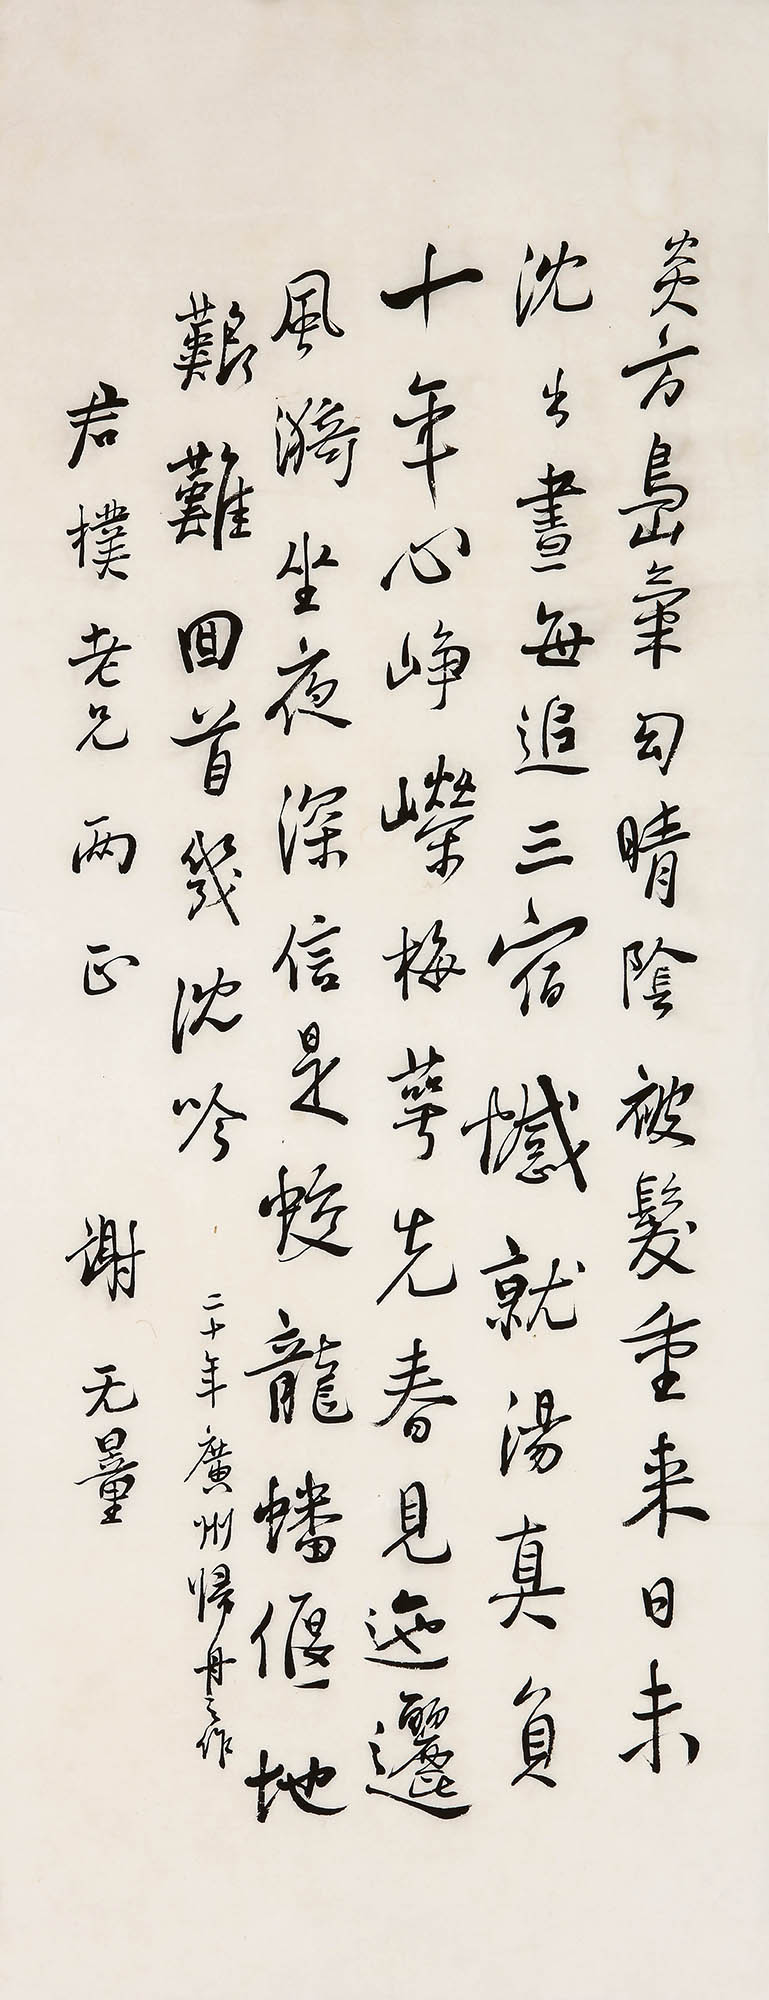 炎方島氣勻晴陰被髮重來日未
沈出晝每追三宿憾就湯真負
十年心崢嶸梅萼先春見迤邐
風漪坐夜深信是蛟龍蟠偃地
艱難回首幾沈吟
二十年廣州歸舟之作
君樸老兄兩正 謝无量